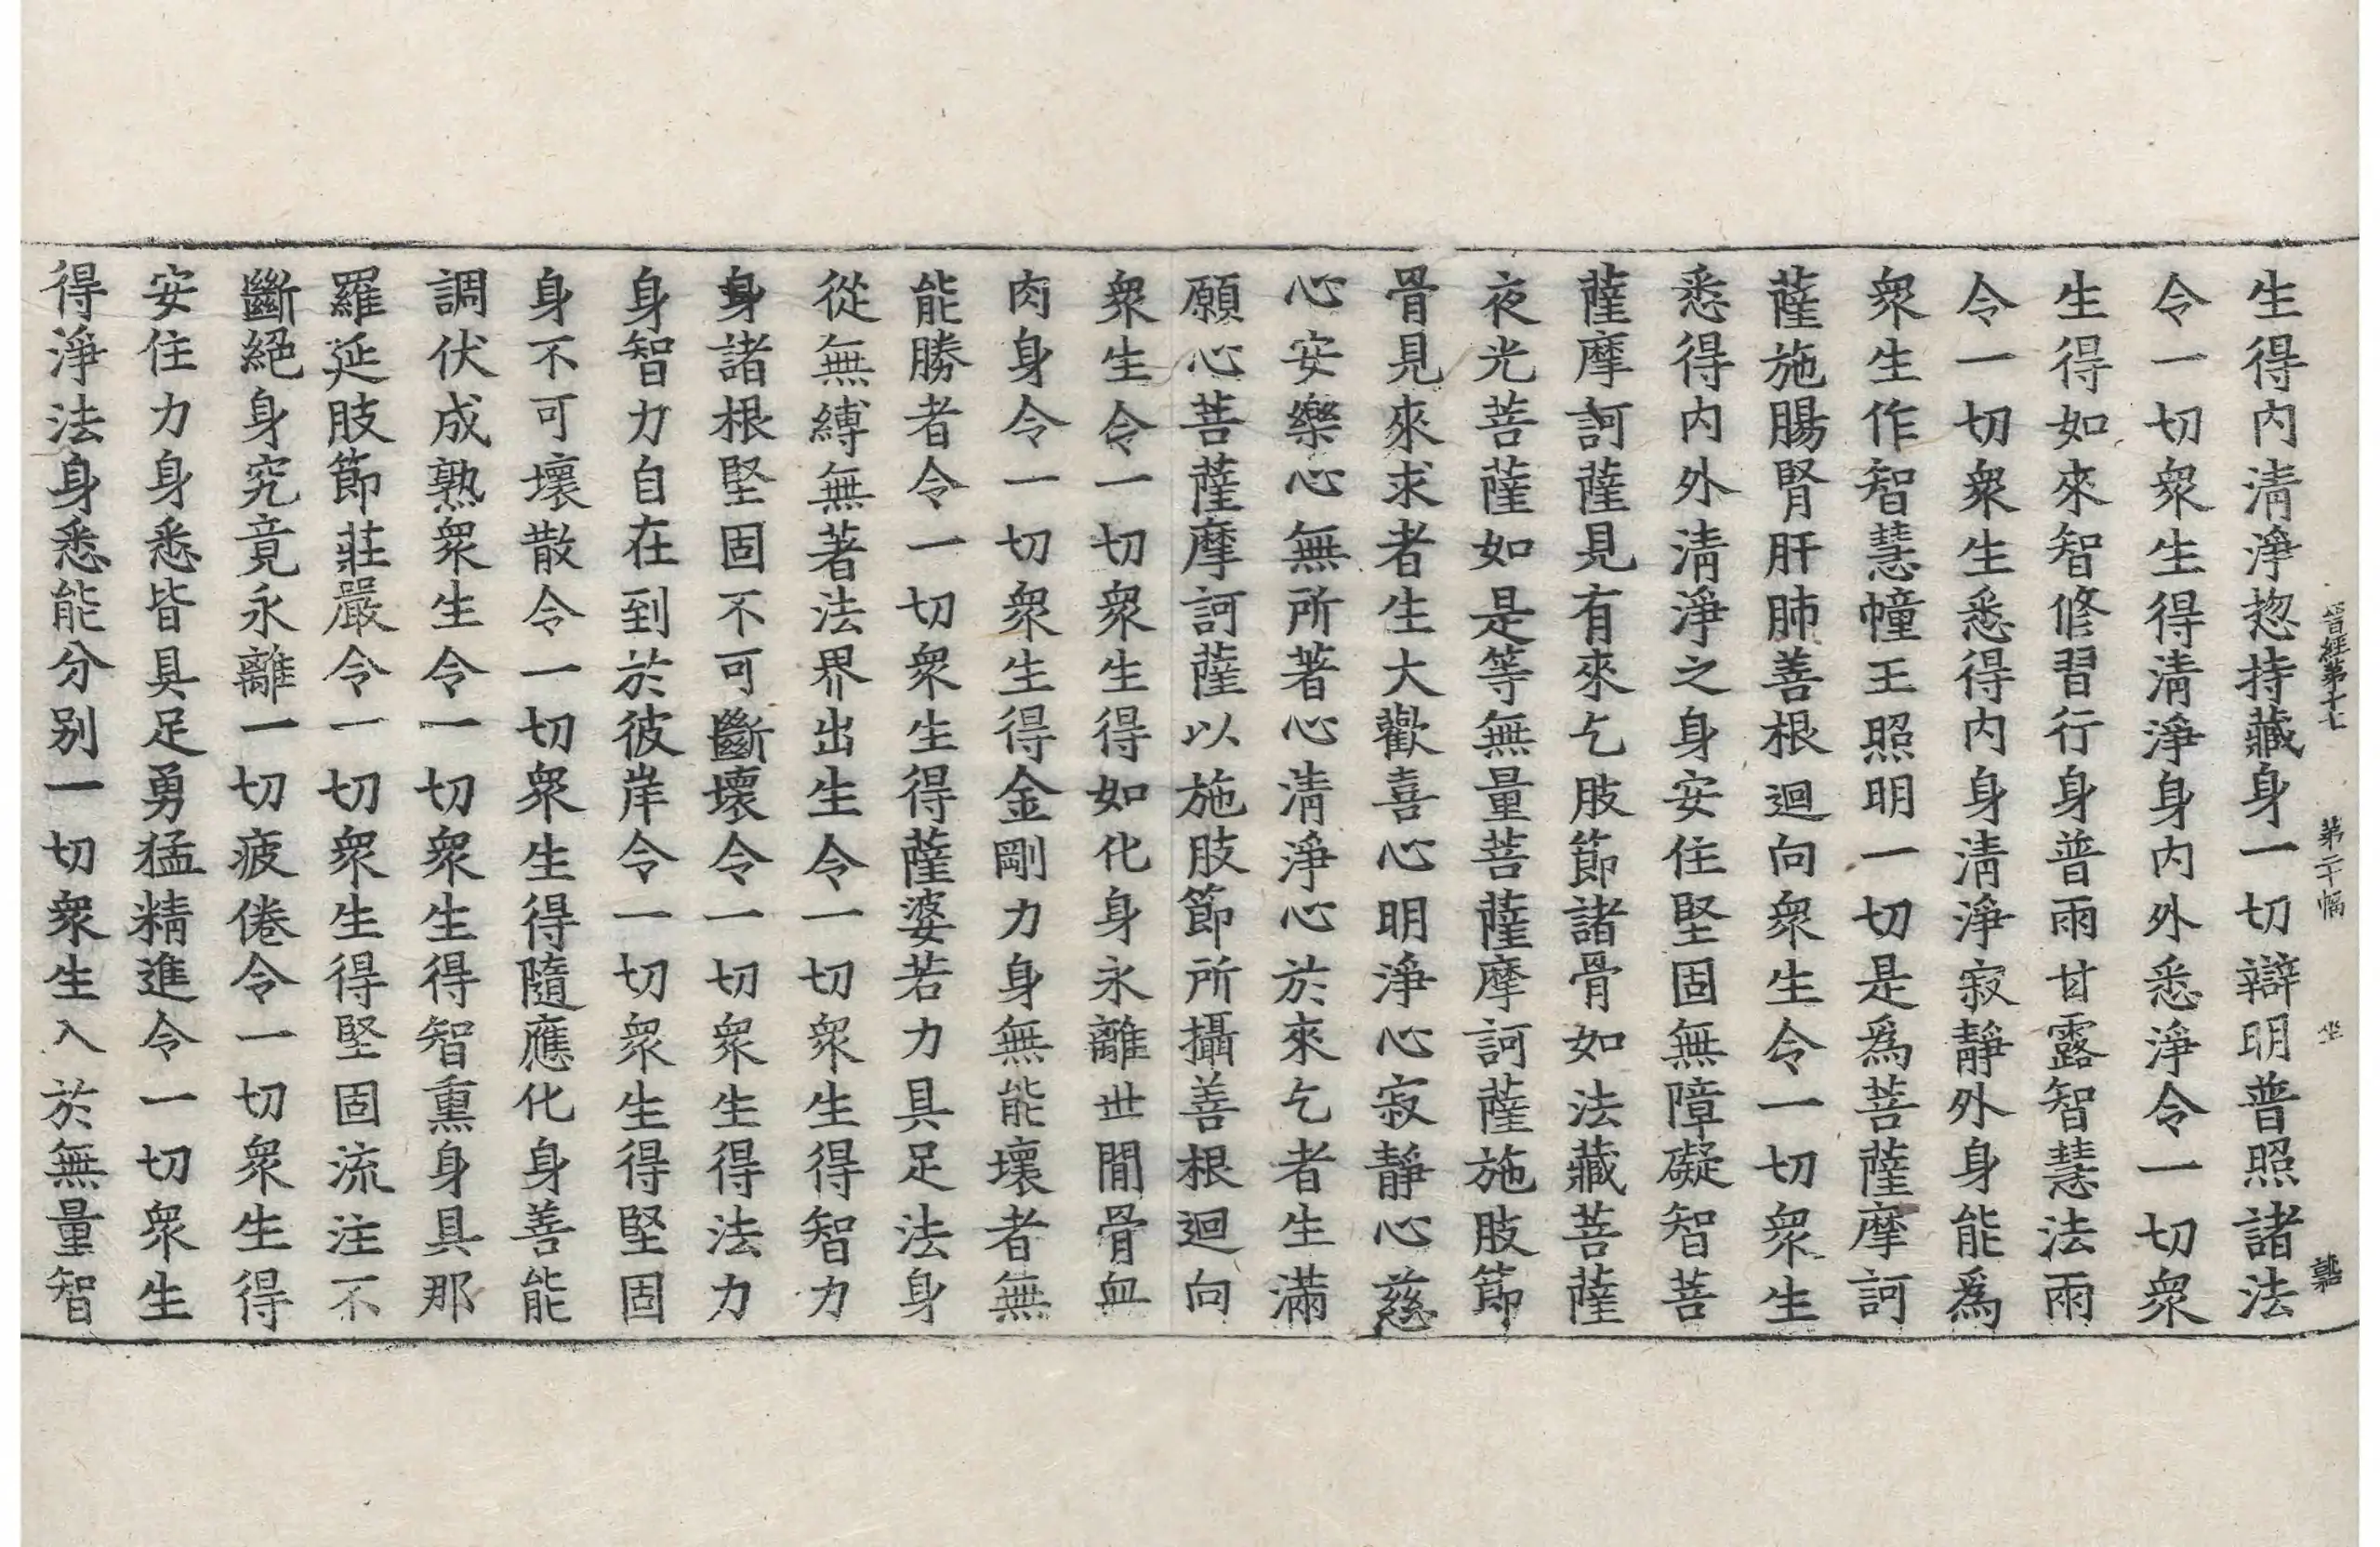 晉經第十七 第二十幅 坐
生得内清淨惣持藏身一切辯明普照諸法
令一切衆生得清淨身内外悉淨令一切衆
生得如來智修習行身普雨甘露智慧法雨
令一切衆生悉得内身清淨寂靜外身能爲
衆生作智慧幢王照明一切是爲菩薩摩訶
薩施腸腎肝肺善根迴向衆生令一切衆生
悉得内外清淨之身安住堅固無障礙智菩
薩摩訶薩見有來乞肢節諸骨如法藏菩薩
夜光菩薩如是等無量菩薩摩訶薩施肢節
骨見來求者生大歡喜心明淨心寂靜心慈
心安樂心無所著心清淨心於來乞者生滿
願心菩薩摩訶薩以施肢節所攝善根迴向
衆生令一切衆生得如化身永離世間骨血
肉身令一切衆生得金剛力身無能壞者無
能勝者令一切衆生得薩婆若力具足法身
從無縛無著法界出生令一切衆生得智力
身諸根堅固不可斷壞令一切衆生得法力
身智力自在到於彼岸令一切衆生得堅固
身不可壞散令一切衆生得隨應化身善能
調伏成熟衆生令一切衆生得智熏身具那
羅延肢節莊嚴令一切衆生得堅固流注不
斷絕身究竟永離一切疲倦令一切衆生得
安住力身悉皆具足勇猛精進令一切衆生
得淨法身悉能分別一切衆生入於無量智